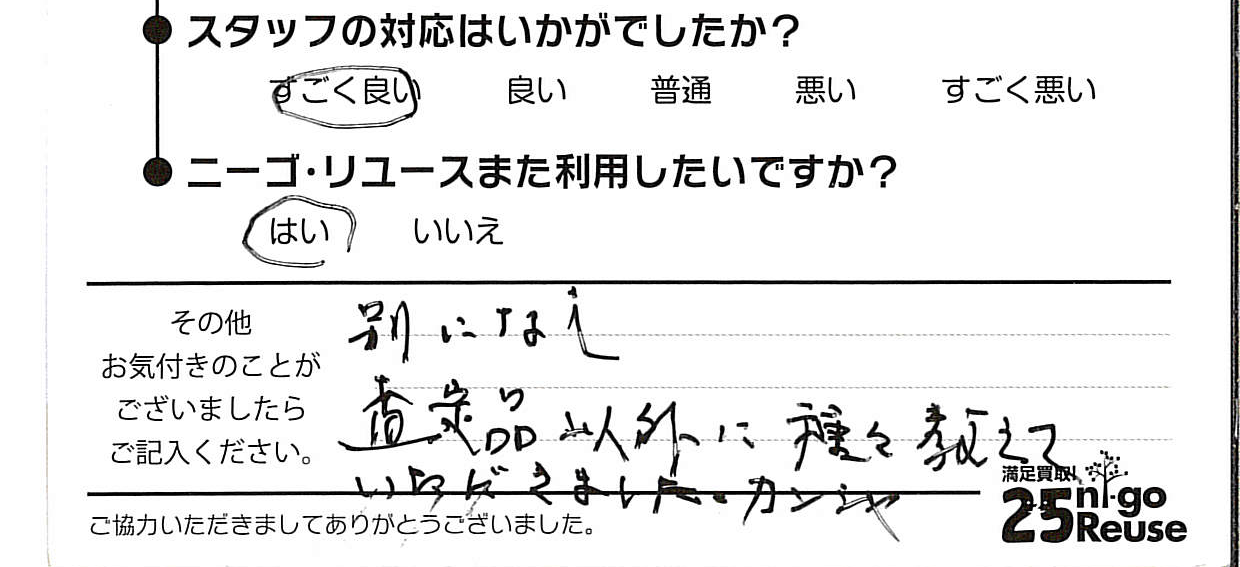 スタッフの対応はいかがでしたか？
すごく良い 良い 普通 悪い すごく悪い
ニーゴ・リユースまた利用したいですか？
はい いいえ
その他
お気付きのことが
ございましたら
ご記入ください。
別になし
査定品以外に種々教えて
いただきました。カンシャ
ご協力いただきましてありがとうございました。
満足買取!
25 ni-go
Reuse